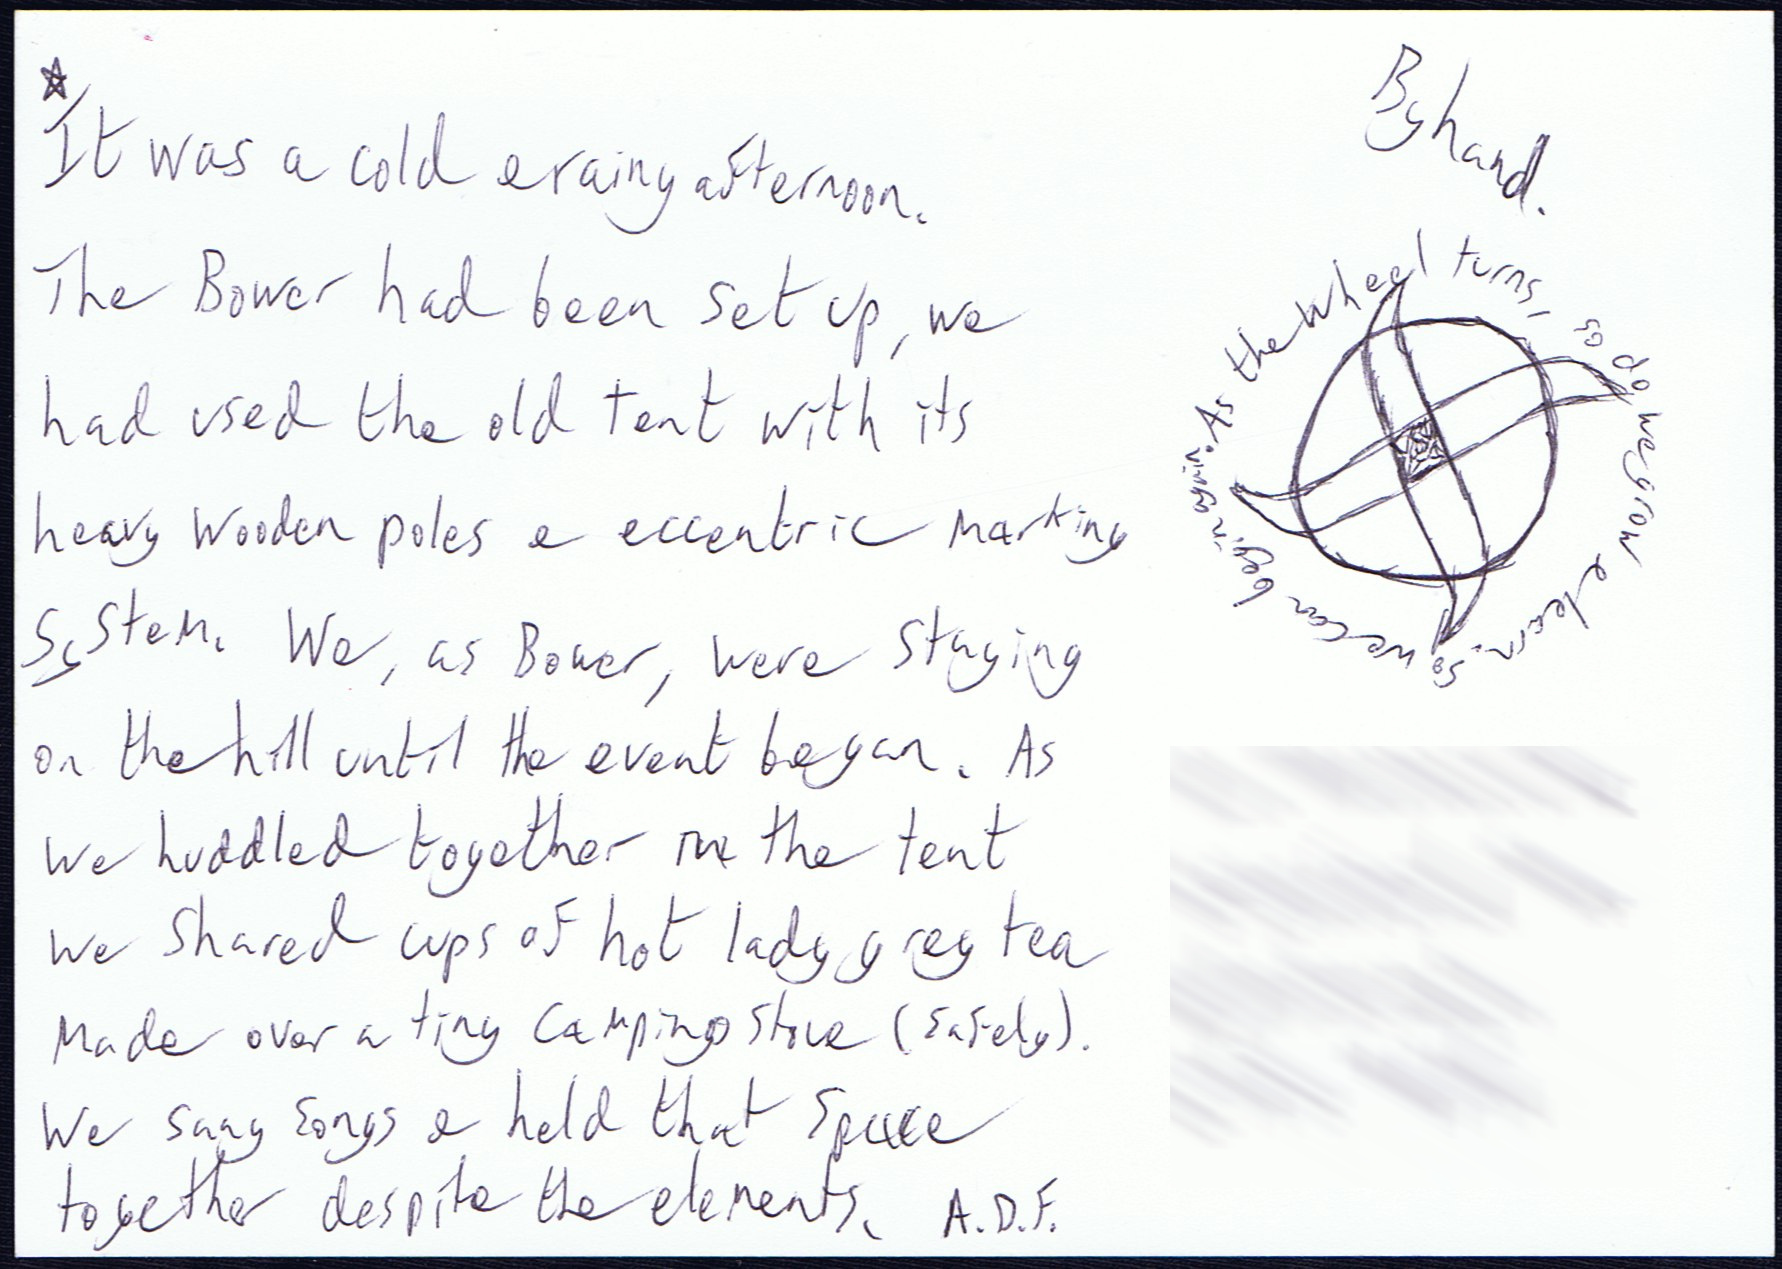 It was a cold & rainy afternoon.
The Bower had been set up, we
had used the old tent with its
heavy wooden poles & eccentric marking
system. We, as Bower, were staying
on the hill until the event began. As
we huddled together in the tent
we shared cups of hot lady grey tea
Made over a tiny camping stove (safely).
We sang songs & held that space
together despite the elements. A.D.F.
By hand.
As the Wheel turns, so do we grow & learn. So we can begin again.